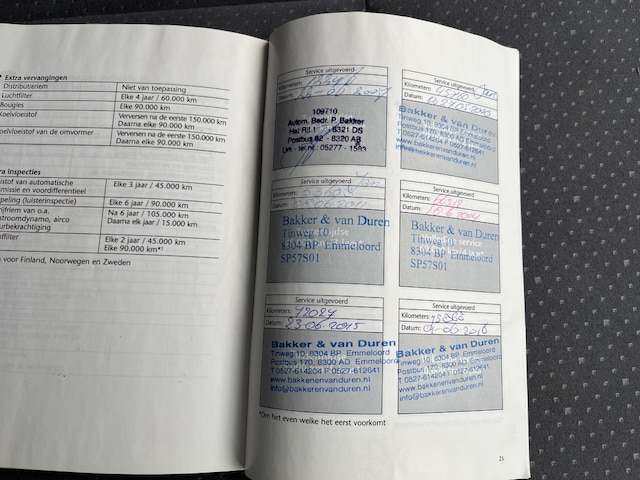 Extra vervangingen
Distributieriem Niet van toepassing
Luchtfilter Elke 4 jaar / 60.000 km
Bougies Elke 90.000 km
Koelvloeistof Verversen na de eerste 150.000 km
Daarna elke 90.000 km
koelvloeistof van de omvormer Verversen na de eerste 150.000 km
Daarna elke 90.000 km
inspecties
van automatische
en voordifferentieel Elke 3 jaar / 45.000 km
speling (luisterinspectie) Elke 6 jaar / 90.000 km
van o.a.
airco Na 6 jaar / 105.000 km
Daarna elk jaar / 15.000 km
Elke 2 jaar / 45.000 km
Elke 90.000 km*¹
voor Finland, Noorwegen en Zweden
Service uitgevoerd
Kilometers:
Datum:
109710
Autom. Bedr. P. Bakker
8321 DS
Postbus 82 - 8320 AB
Urk - tel.nr.: 05277 - 1583
Service uitgevoerd
Kilometers:
Datum:
Bakker & van Duren
Tinweg 10, 8304 BP Emmeloord
Postbus 170, 8300 AD Emmeloord
T 0527-614204 F 0527-612641
www.bakkerenvanduren.nl
info@bakkerenvanduren.nl
Service uitgevoerd
Kilometers:
Datum:
Bakker & van Duren
Tinweg 10
8304 BP Emmeloord
SP57S01
Service uitgevoerd
Kilometers:
Datum:
Bakker & van Duren
Tinweg 10
8304 BP Emmeloord
SP57S01
Service uitgevoerd
Kilometers: 72084
Datum: 23-06-2015
Bakker & van Duren
Tinweg 10, 8304 BP Emmeloord
Postbus 170, 8300 AD Emmeloord
T 0527-614204 F 0527-612641
www.bakkerenvanduren.nl
info@bakkerenvanduren.nl
Service uitgevoerd
Kilometers:
Datum:
Bakker & van Duren
Tinweg 10, 8304 BP Emmeloord
Postbus 170, 8300 AD Emmeloord
T 0527-614204 F 0527-612641
www.bakkerenvanduren.nl
info@bakkerenvanduren.nl
*Om het even welke het eerst voorkomt
25